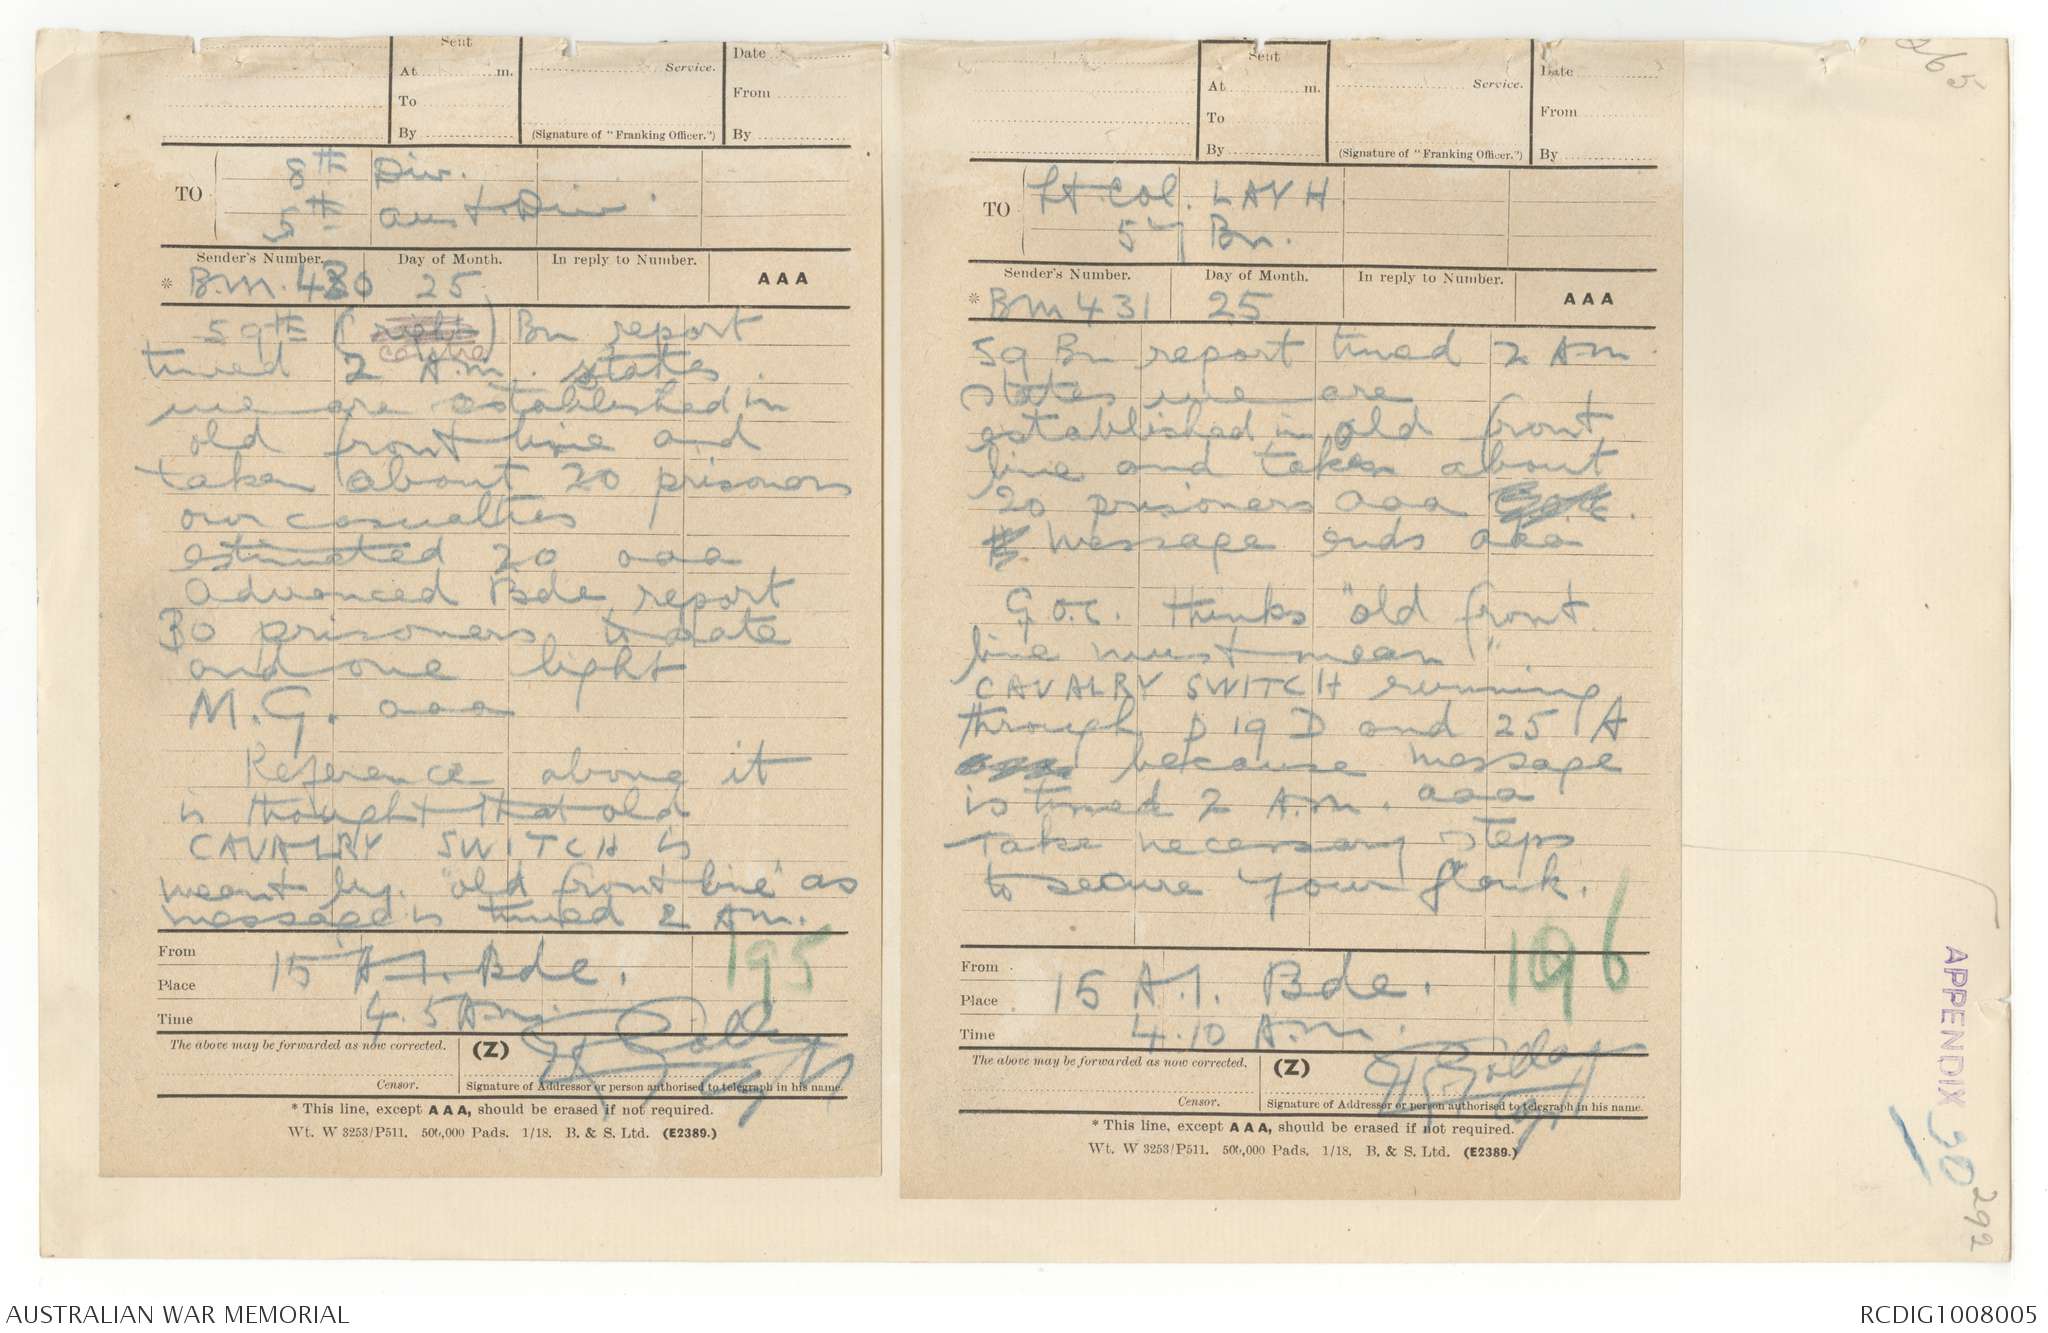 Sent
At m.
To
By
Service.
(Signature of "Franking Officer.")
Date
From
By
TO
8th Div.
5th Aust Div.
Sender's Number.
Day of Month.
In reply to Number.
AAA
* B.M. 430
25
59th (right) Bn report
centre
timed 2 A.m. states
we are established in
old front line and
taken about 20 prisoners
our casualties
estimated 20 aaa
Advanced Bde report
30 prisoners to date
and one light
M.G. aaa
Reference above it
is thought that old
CAVALRY SWITCH is
meant by "old front line" as
message is timed 2 Am.
From
15 A.I. Bde.
195
Place
Time
4.5 Am.
The above may be forwarded as now corrected.
(Z)
Censor.
Signature of Addressor or person authorised to telegraph in his name.
* This line, except AAA, should be erased if not required.
Wt. W 3253/P511. 500,000 Pads. 1/18. B. & S. Ltd. (E2389.)
Sent
At m.
To
By
Service.
(Signature of "Franking Officer.")
Date
From
By
TO
Lt. Col. LAYH
57 Bn.
Sender's Number.
Day of Month.
In reply to Number.
AAA
* Bm 431
25
59 Bn report timed 2 Am.
states we are
established in old front
line and taken about
20 prisoners aaa
Message ends aaa
G.O.C. thinks "old front
line must mean "
CAVALRY SWITCH running
through P 19 D and 25 A
because message
is timed 2 A.m. aaa
Take necessary steps
to secure your flank.
From
15 A.I. Bde.
196
Place
Time
4.10 A.m.
The above may be forwarded as now corrected.
(Z)
Censor.
Signature of Addressor or person authorised to telegraph in his name.
* This line, except AAA, should be erased if not required.
Wt. W 3253/P511. 500,000 Pads. 1/18. B. & S. Ltd. (E2389.)
265
APPENDIX 30
292
AUSTRALIAN WAR MEMORIAL
RCDIG1008005